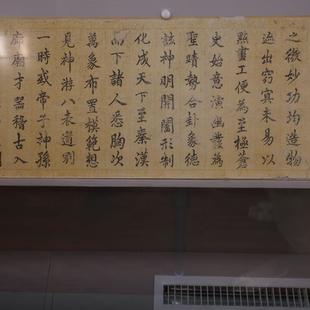 之微妙功均造物
迹出窈冥未易以
點畫工便為至極蒼
史始意演幽發為
聖蹟勢合卦象德
該神明開闔形制
化成天下至秦漢
而下諸人悉胸次
萬象布置模範想
見神游八表道冠
一時或帝子神孫
廊廟才器稽古入